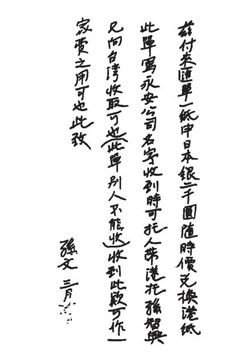 茲付来匯單一紙申日本銀二千圓隨時價兌換港紙
此單寫永安公司名字收到時可托人帶港托孫智興
兄向台湾收取可也(此單别人不能收)收到此欵可作一
家費之用可也此致
孫文 三月